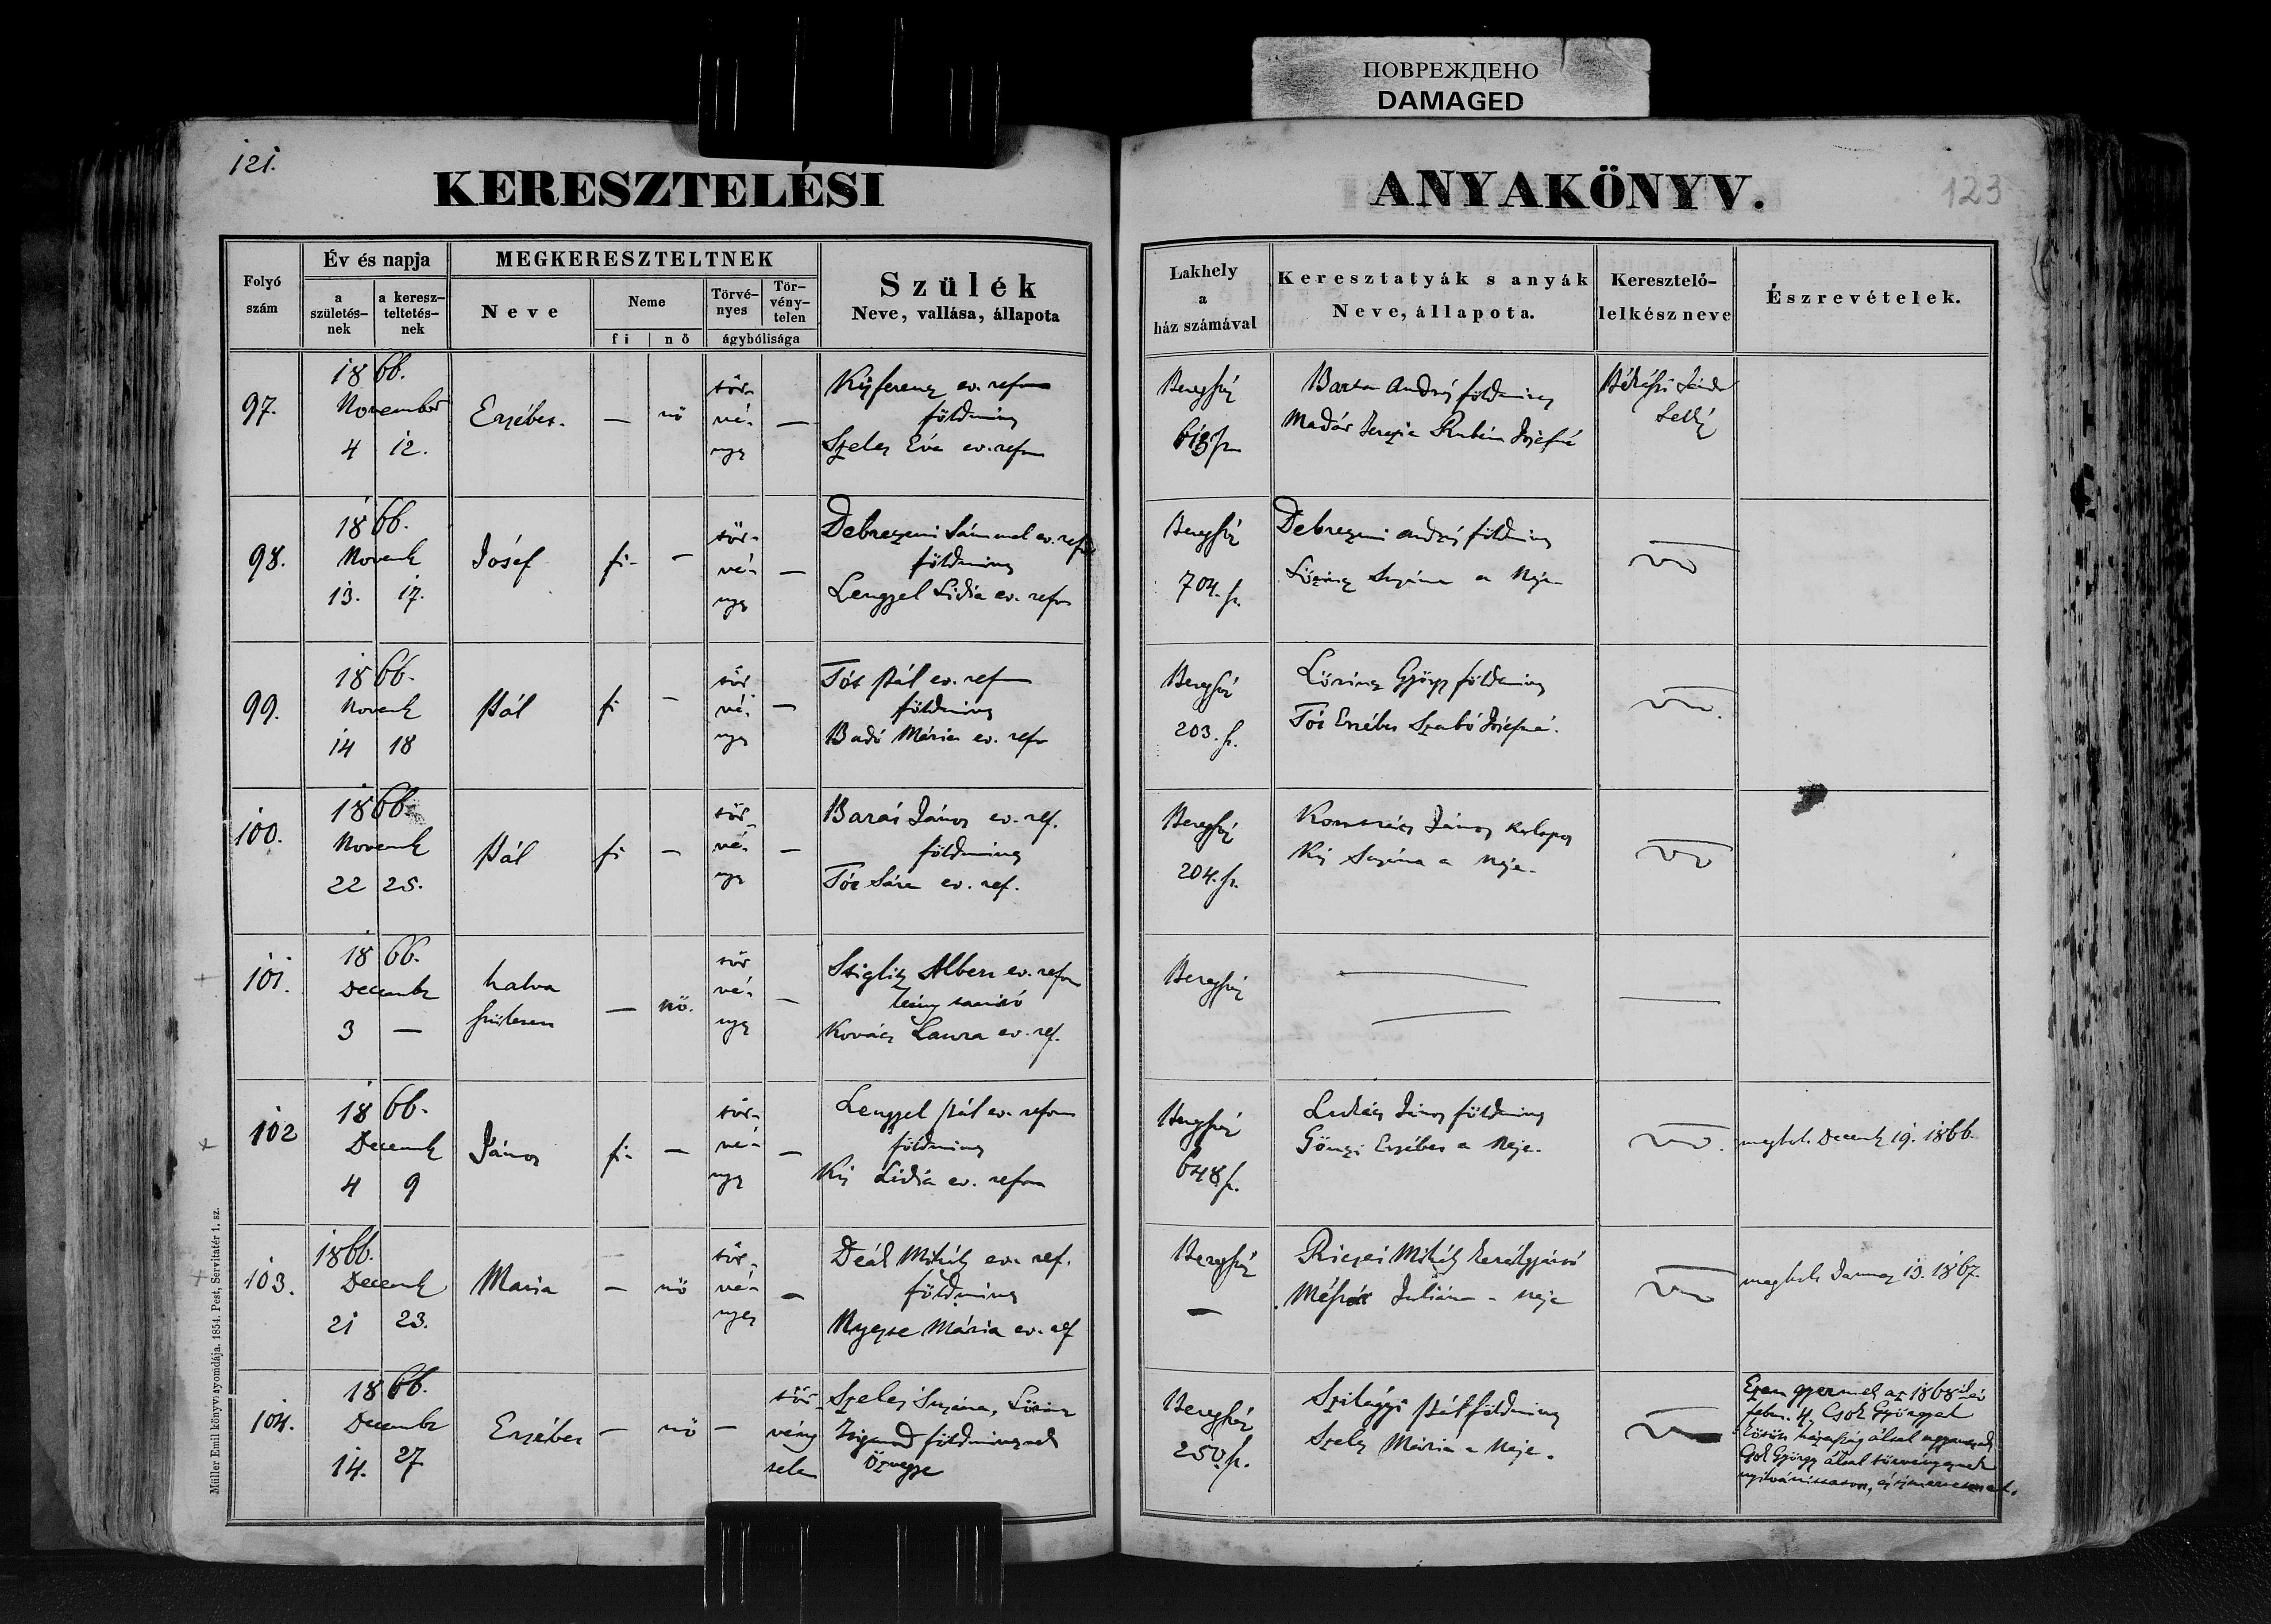 ПОВРЕЖДЕНО
DAMAGED
121.
123
KERESZTELÉSI ANYAKÖNYV.
Folyó szám
Év és napja
a születés-nek
a keresz-teltetés-nek
MEGKERESZTELTNEK
Neve
Neme
fi
nö
Törvé-nyes
Tör-vény-telen
ágybólisága
Szülék
Neve, vallása, állapota
Lakhely
a
ház számával
Keresztatyák s anyák
Neve, állapota.
Keresztelő-
lelkész neve
Észrevételek.
97.
1866.
November
4 12.
Erzsébet.
— nö
tör-
vé-
nyes
—
Kis ferencz ev. refor
földmives
Szeles Éva ev. refor
Beregszász
Barta András földmives
Madár Terezia
98.
1866.
Novemb
13. 17.
Jósef
fi- —
tör-
vé-
nyes
—
Debreczeni Sámuel ev. refor
földmives
Lengyel Lidia ev. refor
Beregszász
704. sz.
Debreczeni András földmives
Lőrincz Zsuzsána a Neje
99.
1866.
Novemb
14 18
Pál
fi —
tör
vé-
nyes
—
Tót Pál ev. refor
földmives
Badó Mária ev. refor
Beregszász
203. sz.
Lőrincz György földmives
Tót Erzsébet Szabó Jósefné.
100.
1866.
Novemb
22 25.
Pál
fi —
tör-
vé-
nyes
—
János ev. ref.
földmives
Tót Sára ev. ref.
Beregszász
204. sz.
János kalapos
Kis Zsuzsána a neje.
101.
1866.
Decembr
3 —
halva
született
— nö.
tör
vé-
nyes
—
Albert ev. refor
tanitó
Kovács Laura ev. ref.
Beregszász
102
1866.
Decemb
4 9
János
fi- —
tör-
vé-
nyes
—
Lengyel Pál ev. refor
földmives
Kis Lidia ev. refor
Beregszász
648 sz.
Lukács János földmives
Gönczi Erzsébet a Neje.
megholt Decemb 19. 1866.
103.
1866.
Decemb
21 23.
Maria
— nö
tör-
vé-
nyes
—
Deák Mihály ev. ref.
földmives
Mária ev. ref
Beregszász
—
Mihály
Juliána a neje
megholt Januar 13. 1867.
104.
1866.
Decembr
14. 27
Erzsébet
— nö —
tör-
vény
telen
Szeles Zsuzsána, Lőrincz
Zsigmond földmivesnek
özvegye
Beregszász
250. sz.
Szilágyi Pál földmives
Szeles Mária a Neje.
Ezen gyermek az 1868
febr. 4, Csok Györgyel
házasság által
Csok György által törvényesnek
Müller Emil könyvnyomdája. 1854. Pest, Servitatér 1. sz.